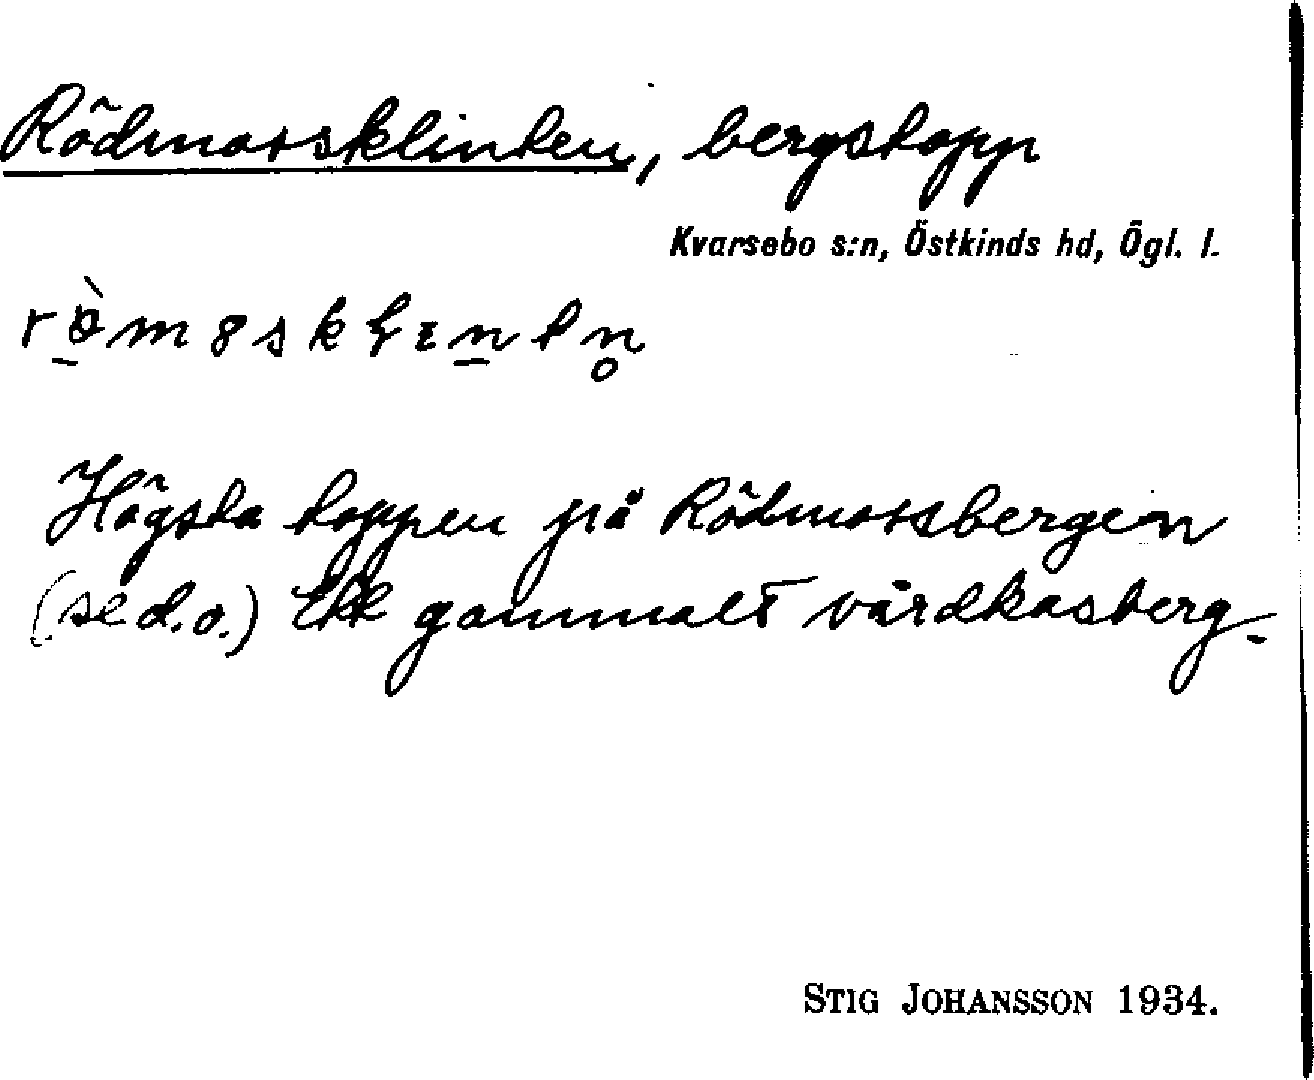 Rödmossklinten, bergstopp
Kvarsebo s:n, Östkinds hd, Ögl. l.
Högsta toppen på Rödmossbergen
(se d.o.) Ett gammalt vårdkasberg.
STIG JOHANSSON 1934.